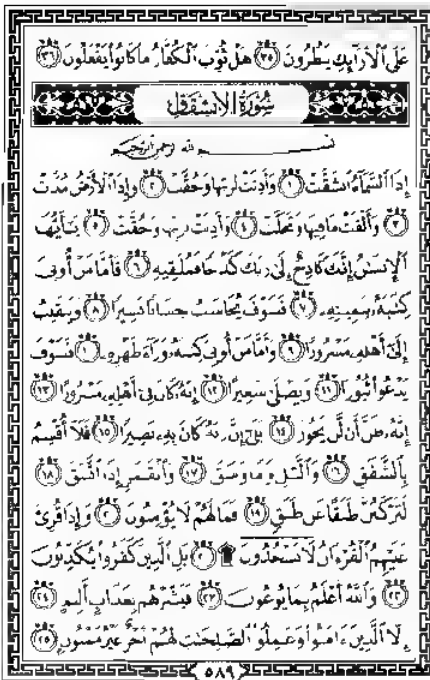 عَلَى ٱلْأَرَآئِكِ يَنظُرُونَ ﴿٣٥﴾ هَلْ ثُوِّبَ ٱلْكُفَّارُ مَا كَانُوا۟ يَفْعَلُونَ ﴿٣٦﴾
سُورَةُ الانشِقَاقِ
بِسْمِ ٱللَّهِ ٱلرَّحْمَٰنِ ٱلرَّحِيمِ
إِذَا ٱلسَّمَآءُ ٱنشَقَّتْ ﴿١﴾ وَأَذِنَتْ لِرَبِّهَا وَحُقَّتْ ﴿٢﴾ وَإِذَا ٱلْأَرْضُ مُدَّتْ
﴿٣﴾ وَأَلْقَتْ مَا فِيهَا وَتَخَلَّتْ ﴿٤﴾ وَأَذِنَتْ لِرَبِّهَا وَحُقَّتْ ﴿٥﴾ يَٰٓأَيُّهَا
ٱلْإِنسَٰنُ إِنَّكَ كَادِحٌ إِلَىٰ رَبِّكَ كَدْحًا فَمُلَٰقِيهِ ﴿٦﴾ فَأَمَّا مَنْ أُوتِىَ
كِتَٰبَهُۥ بِيَمِينِهِۦ ﴿٧﴾ فَسَوْفَ يُحَاسَبُ حِسَابًا يَسِيرًا ﴿٨﴾ وَيَنقَلِبُ
إِلَىٰٓ أَهْلِهِۦ مَسْرُورًا ﴿٩﴾ وَأَمَّا مَنْ أُوتِىَ كِتَٰبَهُۥ وَرَآءَ ظَهْرِهِۦ ﴿١٠﴾ فَسَوْفَ
يَدْعُوا۟ ثُبُورًا ﴿١١﴾ وَيَصْلَىٰ سَعِيرًا ﴿١٢﴾ إِنَّهُۥ كَانَ فِىٓ أَهْلِهِۦ مَسْرُورًا ﴿١٣﴾
إِنَّهُۥ ظَنَّ أَن لَّن يَحُورَ ﴿١٤﴾ بَلَىٰٓ إِنَّ رَبَّهُۥ كَانَ بِهِۦ بَصِيرًا ﴿١٥﴾ فَلَآ أُقْسِمُ
بِٱلشَّفَقِ ﴿١٦﴾ وَٱلَّيْلِ وَمَا وَسَقَ ﴿١٧﴾ وَٱلْقَمَرِ إِذَا ٱتَّسَقَ ﴿١٨﴾
لَتَرْكَبُنَّ طَبَقًا عَن طَبَقٍ ﴿١٩﴾ فَمَا لَهُمْ لَا يُؤْمِنُونَ ﴿٢٠﴾ وَإِذَا قُرِئَ
عَلَيْهِمُ ٱلْقُرْءَانُ لَا يَسْجُدُونَ ۩ ﴿٢١﴾ بَلِ ٱلَّذِينَ كَفَرُوا۟ يُكَذِّبُونَ
﴿٢٢﴾ وَٱللَّهُ أَعْلَمُ بِمَا يُوعُونَ ﴿٢٣﴾ فَبَشِّرْهُم بِعَذَابٍ أَلِيمٍ ﴿٢٤﴾
إِلَّا ٱلَّذِينَ ءَامَنُوا۟ وَعَمِلُوا۟ ٱلصَّٰلِحَٰتِ لَهُمْ أَجْرٌ غَيْرُ مَمْنُونٍ ﴿٢٥﴾
٥٨٩